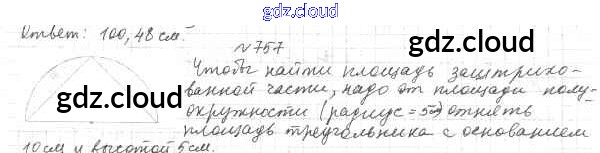 gdz.cloud
Ответ: 100,48 см²
gdz.cloud
№ 757
Чтобы найти площадь заштрихо-
ванной части, надо от площади полу-
окружности (радиус = 5см) отнять
площадь треугольника с основанием
10 см и высотой 5 см.
gdz.cloud
gdz.cloud